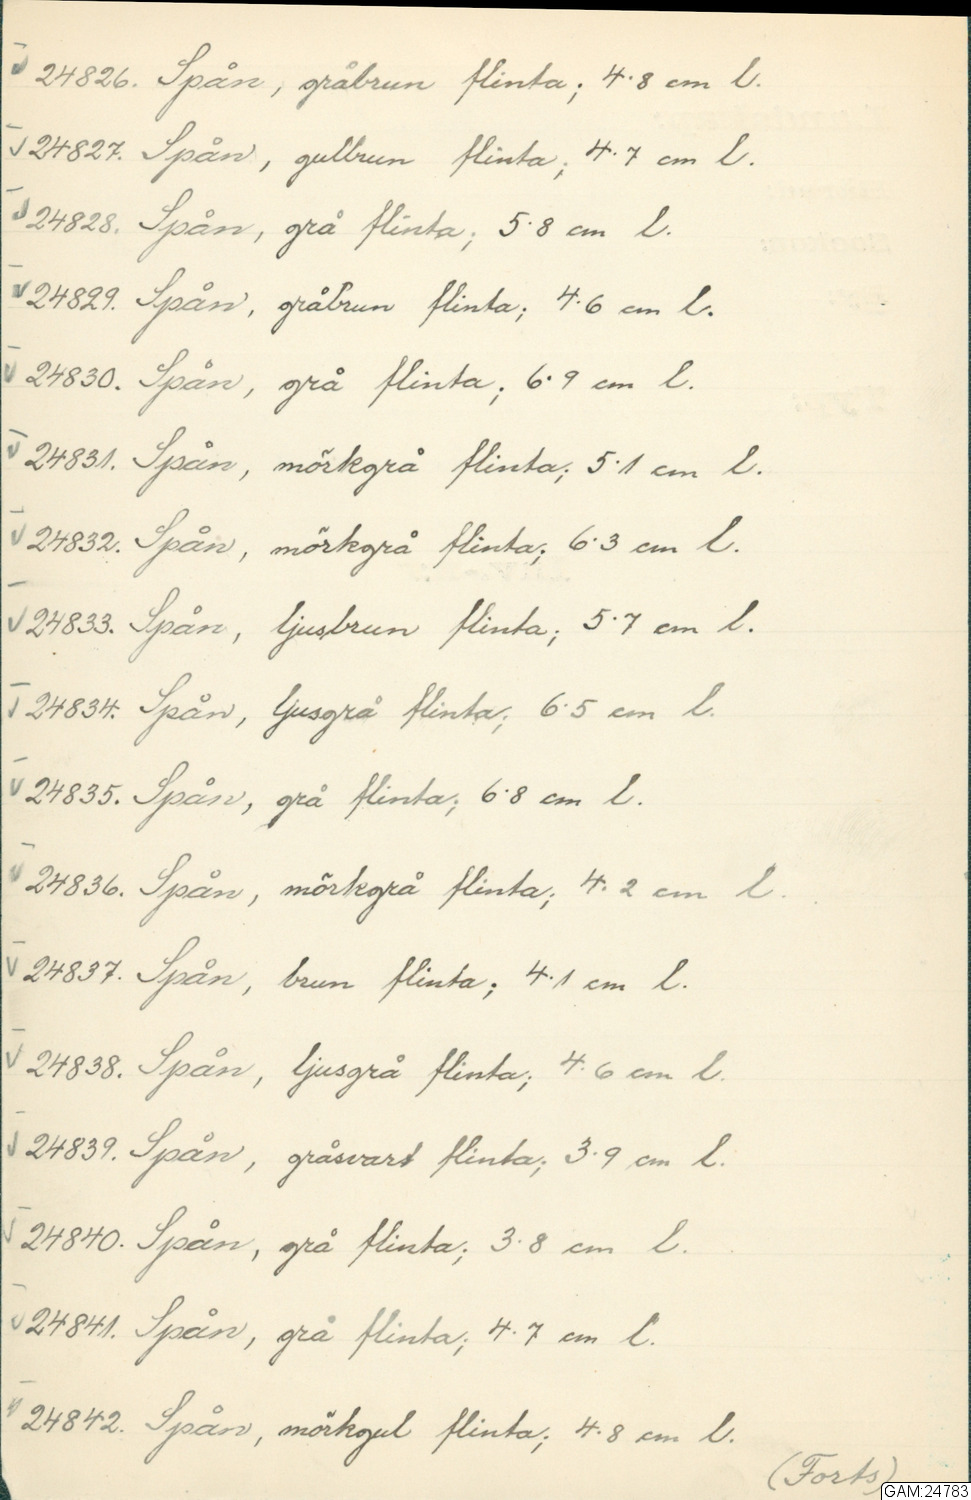 24826. Spån, gråbrun flinta; 4.8 cm l.
24827. Spån, gulbrun flinta; 4.7 cm l.
24828. Spån, grå flinta; 5.8 cm l.
24829. Spån, gråbrun flinta; 4.6 cm l.
24830. Spån, grå flinta; 6.9 cm l.
24831. Spån, mörkgrå flinta; 5.1 cm l.
24832. Spån, mörkgrå flinta; 6.3 cm l.
24833. Spån, ljusbrun flinta; 5.7 cm l.
24834. Spån, ljusgrå flinta; 6.5 cm l.
24835. Spån, grå flinta; 6.8 cm l.
24836. Spån, mörkgrå flinta; 4.2 cm l.
24837. Spån, brun flinta; 4.1 cm l.
24838. Spån, ljusgrå flinta; 4.6 cm l.
24839. Spån, gråsvart flinta; 3.9 cm l.
24840. Spån, grå flinta; 3.8 cm l.
24841. Spån, grå flinta; 4.7 cm l.
24842. Spån, mörkgul flinta; 4.8 cm l.
(Forts)
GAM:24783